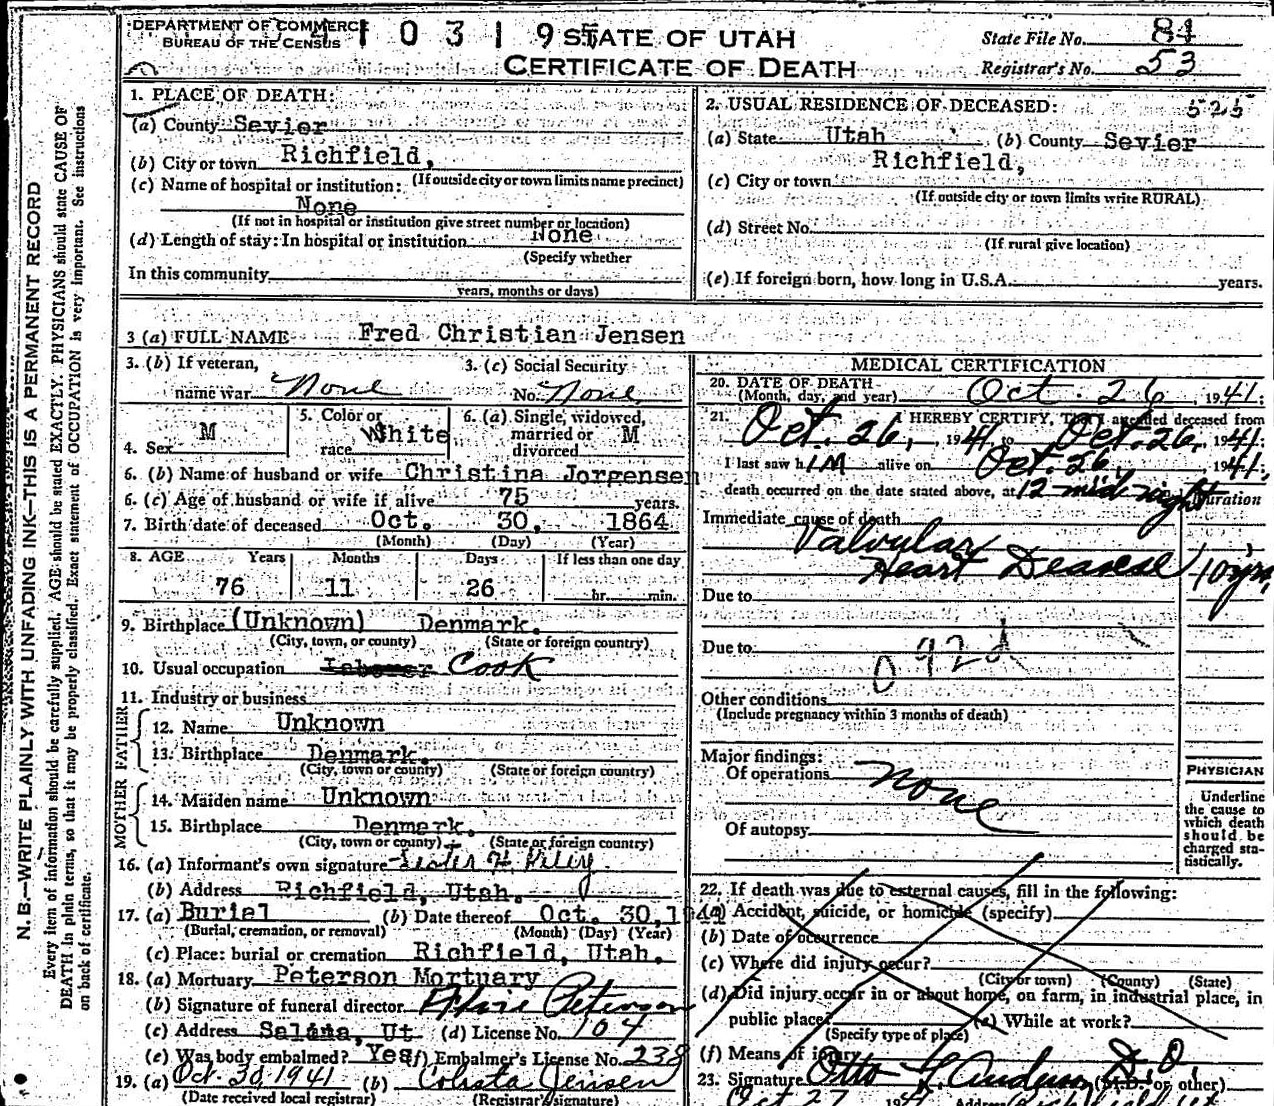 DEPARTMENT OF COMMERCE
BUREAU OF THE CENSUS
STATE OF UTAH
CERTIFICATE OF DEATH
State File No. 84
Registrar's No. 53
N.B.—WRITE PLAINLY WITH UNFADING INK—THIS IS A PERMANENT RECORD
Every item of information should be carefully supplied. AGE should be stated EXACTLY. PHYSICIANS should state CAUSE OF
DEATH in plain terms, so that it may be properly classified. Exact statement of OCCUPATION is very important. See instructions
on back of certificate.
1. PLACE OF DEATH:
(a) County Sevier
(b) City or town Richfield,
(If outside city or town limits name precinct)
(c) Name of hospital or institution:
None
(If not in hospital or institution give street number or location)
(d) Length of stay: In hospital or institution None
(Specify whether
In this community
years, months or days)
2. USUAL RESIDENCE OF DECEASED: 525
(a) State Utah (b) County Sevier
Richfield,
(c) City or town
(If outside city or town limits write RURAL)
(d) Street No.
(If rural give location)
(e) If foreign born, how long in U.S.A. years.
3 (a) FULL NAME Fred Christian Jensen
3. (b) If veteran,
name war None
3. (c) Social Security
No. None
4. Sex M
5. Color or
race White
6. (a) Single, widowed,
married or
divorced M
6. (b) Name of husband or wife Christina Jorgensen
6. (c) Age of husband or wife if alive 75 years.
7. Birth date of deceased Oct. 30, 1864
(Month) (Day) (Year)
8. AGE Years Months Days If less than one day
76 11 26 hr. min.
9. Birthplace (Unknown) Denmark.
(City, town, or county) (State or foreign country)
10. Usual occupation Laborer Cook
11. Industry or business
FATHER
12. Name Unknown
13. Birthplace Denmark.
(City, town or county) (State or foreign country)
MOTHER
14. Maiden name Unknown
15. Birthplace Denmark.
(City, town or county) (State or foreign country)
16. (a) Informant's own signature
(b) Address Richfield, Utah.
17. (a) Burial (b) Date thereof Oct. 30, 1941
(Burial, cremation, or removal) (Month) (Day) (Year)
(c) Place: burial or cremation Richfield, Utah.
18. (a) Mortuary Peterson Mortuary
(b) Signature of funeral director Peterson
(c) Address Salina, Ut (d) License No. 104
(e) Was body embalmed? Yes (f) Embalmer's License No. 238
19. (a) Oct. 30, 1941 (b) Jensen
(Date received local registrar) (Registrar's signature)
MEDICAL CERTIFICATION
20. DATE OF DEATH
(Month, day, and year) Oct. 26, 1941.
21. I HEREBY CERTIFY, That I attended deceased from
Oct. 26, 1941, to Oct. 26, 1941.
I last saw him alive on Oct. 26, 1941,
death occurred on the date stated above, at 12 midnight
Duration
Immediate cause of death
Valvular
Heart Disease 10 yrs.
Due to
Due to
092d
Other conditions
(Include pregnancy within 3 months of death)
Major findings:
Of operations none
Of autopsy
PHYSICIAN
Underline
the cause to
which death
should be
charged sta-
tistically.
22. If death was due to external causes, fill in the following:
(a) Accident, suicide, or homicide (specify)
(b) Date of occurrence
(c) Where did injury occur?
(City or town) (County) (State)
(d) Did injury occur in or about home, on farm, in industrial place, in
public place? (e) While at work?
(Specify type of place)
(f) Means of injury
23. Signature Otto D.O. (M.D. or other)
Oct 27 Address